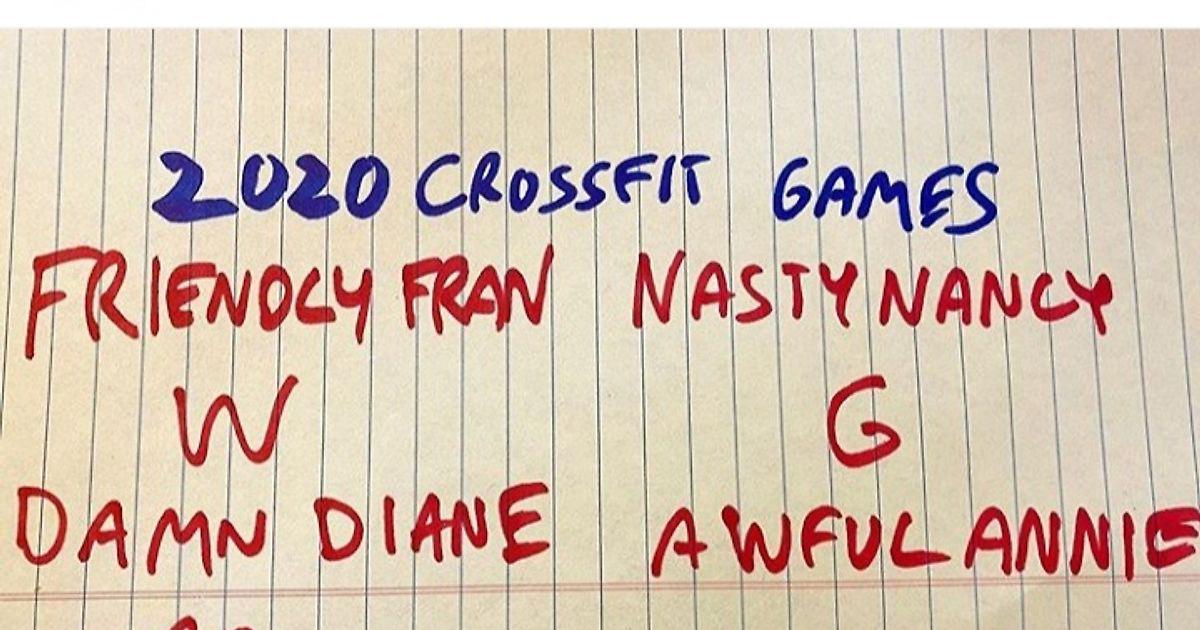 2020 CROSSFIT GAMES
FRIENDLY FRAN NASTY NANCY
W G
DAMN DIANE AWFUL ANNIE